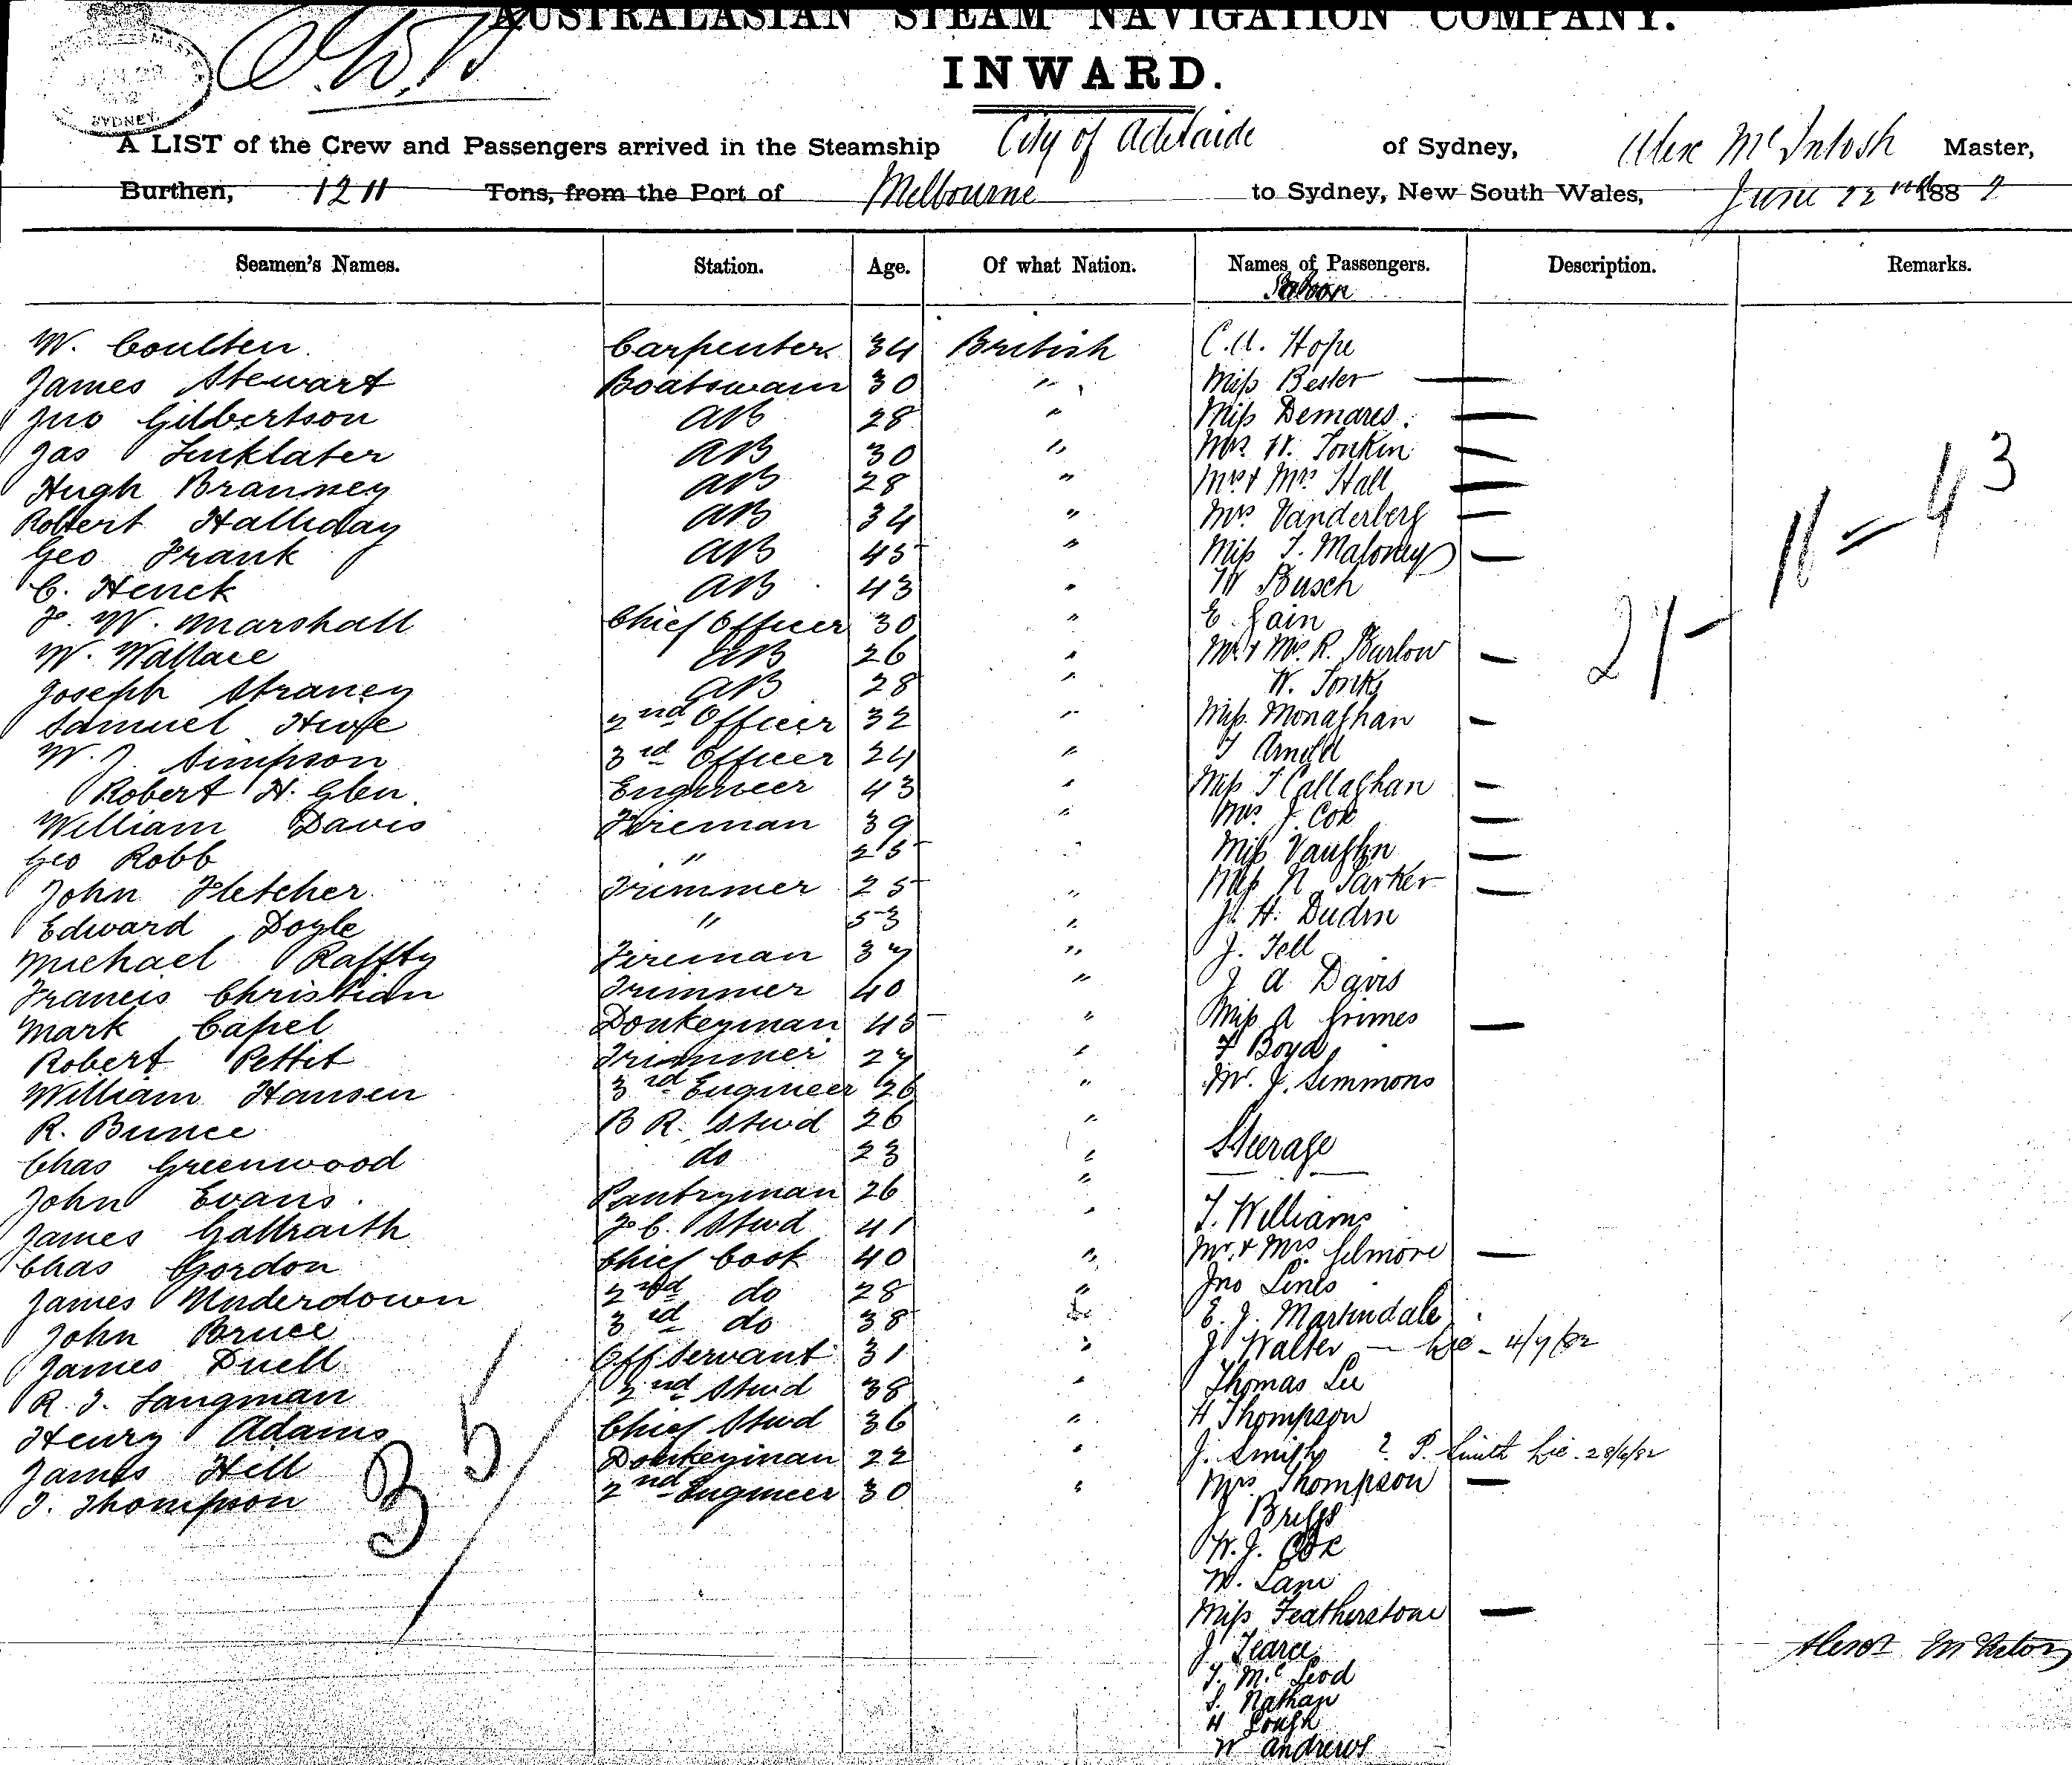 AUSTRALASIAN STEAM NAVIGATION COMPANY.
INWARD.
SYDNEY
A LIST of the Crew and Passengers arrived in the Steamship City of Adelaide of Sydney, Alex McIntosh Master,
Burthen, 1211 Tons, from the Port of Melbourne to Sydney, New South Wales, June 22nd 1882
Seamen's Names. Station. Age. Of what Nation. Names of Passengers. Description. Remarks.
Saloon
W. Coulten Carpenter 34 British C.A. Hope
James Stewart Boatswain 30 " Miss Bester —
Jno Gilbertson AB 28 " Miss Demares —
Jas Linklater AB 30 " Mrs W. Tonkin —
Hugh Branney AB 28 " Mr & Mrs Hall —
Robert Halliday AB 34 " Mrs Vanderberg —
Geo Frank AB 45 " Miss T. Maloney —
C. Henck AB 43 " W Busch
F. W. Marshall Chief Officer 30 " E. Cain
W. Wallace AB 26 " Mr & Mrs R. Barlow —
Joseph Straney AB 28 " W. Tonks
Samuel 2nd Officer 32 " Miss Monaghan —
W. J. Simpson 3rd Officer 24 " T Arnold
Robert H. Glen Engineer 43 " Miss T Callaghan —
William Davis Fireman 39 " Mrs J. Cox —
Geo Robb " 25 " Miss Vaughn —
John Fletcher Trimmer 25 " Miss N Parker —
Edward Doyle " 53 " J. H. Dudin
Michael Raffty Fireman 37 " J. Fell
Francis Christian Trimmer 40 " J A Davis
Mark Capel Donkeyman 45 " Miss A Grimes —
Robert Pettit Trimmer 27 " F Boyd
William Hansen 3rd Engineer 26 " Mr. J. Simmons
R. Bunce B R. Stwd 26 "
Chas Greenwood do 23 " Steerage
John Evans Pantryman 26 "
James Galbraith F C. Stwd 41 " T. Williams
Chas Gordon Chief Cook 40 " Mr. & Mrs Gilmore —
James Underdown 2nd do 28 " Jno Lines
John Bruce 3rd do 38 " E. J. Martindale
James Duell Off Servant 31 " J Walter — 4/7/82
R. J. Langman 2nd Stwd 38 " Thomas Lee
Henry Adams Chief Stwd 36 " H Thompson
James Hill Donkeyman 22 " J. Smith ? P. Smith 28/6/82
J. Thompson 2nd Engineer 30 " Mrs Thompson —
J Briggs
W. J. Cox
W. Lane
Miss Featherstone —
J Pearce
T. McLeod
S. Nathan
H Lough
W Andrews
35
21 –
11 = 43